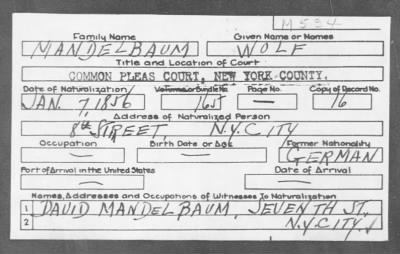 M534
Family Name Given Name or Names
MANDELBAUM WOLF
Title and Location of Court
COMMON PLEAS COURT, NEW YORK COUNTY.
Date of Naturalization Volume or Bundle No. Page No. Copy of Record No.
JAN. 7, 1856 165 — 16
Address of Naturalized Person
8th STREET, N.Y. CITY
Occupation Birth Date or Age Former Nationality
— — GERMAN
Port of Arrival in the United States Date of Arrival
— —
Names, Addresses and Occupations of Witnesses To Naturalization
1 DAVID MANDELBAUM, SEVENTH ST.
2 N.Y. CITY.